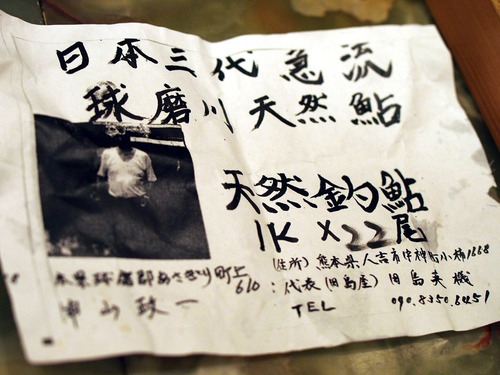 日本三代急流
球磨川天然鮎
天然釣鮎
1K×22尾
(住所) 熊本県人吉市中神町小柿1668
本県球磨郡あさぎり町上
610:代表(旧島屋)旧島英機
山政一
TEL 090.8350.6251